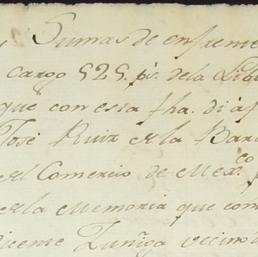 Sumas de enfrente
cargo 525. ps. de la
que con esta fha. di a
José Ruiz de la Bar
del Comercio de Mexco.
de la Memoria que com
Vicente Zuñiga vecino